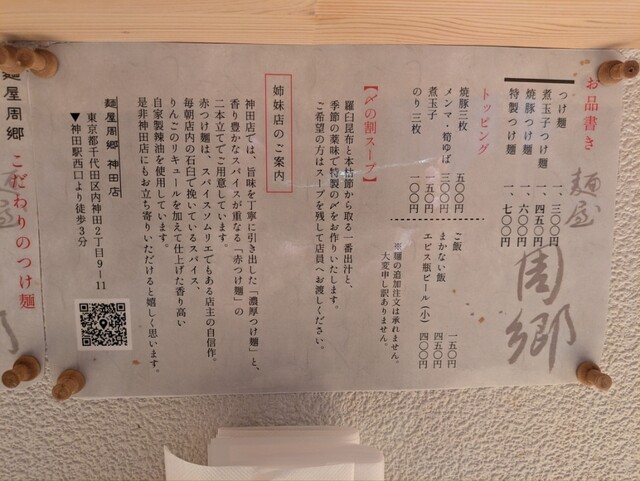 お品書き
麺屋 周郷
つけ麺 一、三〇〇円
煮玉子つけ麺 一、四五〇円
焼豚つけ麺 一、六〇〇円
特製つけ麺 一、七〇〇円
トッピング
焼豚三枚 五〇〇円
メンマ・筍ゆば 三〇〇円
煮玉子 一五〇円
のり 三枚 一〇〇円
ご飯 一五〇円
まかない飯 四五〇円
エビス瓶ビール(小) 四〇〇円
※麺の追加注文は承れません。
大変申し訳ありません。
【〆の割スープ】
羅臼昆布と本枯節から取る一番出汁と、
季節の薬味で特製の〆をお作りいたします。
ご希望の方はスープを残して店員へお渡しください。
姉妹店のご案内
神田店では、旨味を丁寧に引き出した「濃厚つけ麺」と、
香り豊かなスパイスが重なる「赤つけ麺」の
二本立てでご用意しています。
赤つけ麺は、スパイスソムリエでもある店主の自信作。
毎朝店内の石臼で挽いているスパイス、
りんごのリキュールを加えて仕上げた香り高い
自家製辣油を使用しています。
是非神田店にもお立ち寄りいただけると嬉しく思います。
麺屋周郷 神田店
東京都千代田区内神田2丁目9-11
▼神田駅西口より徒歩3分
麺屋周郷 こだわりのつけ麺